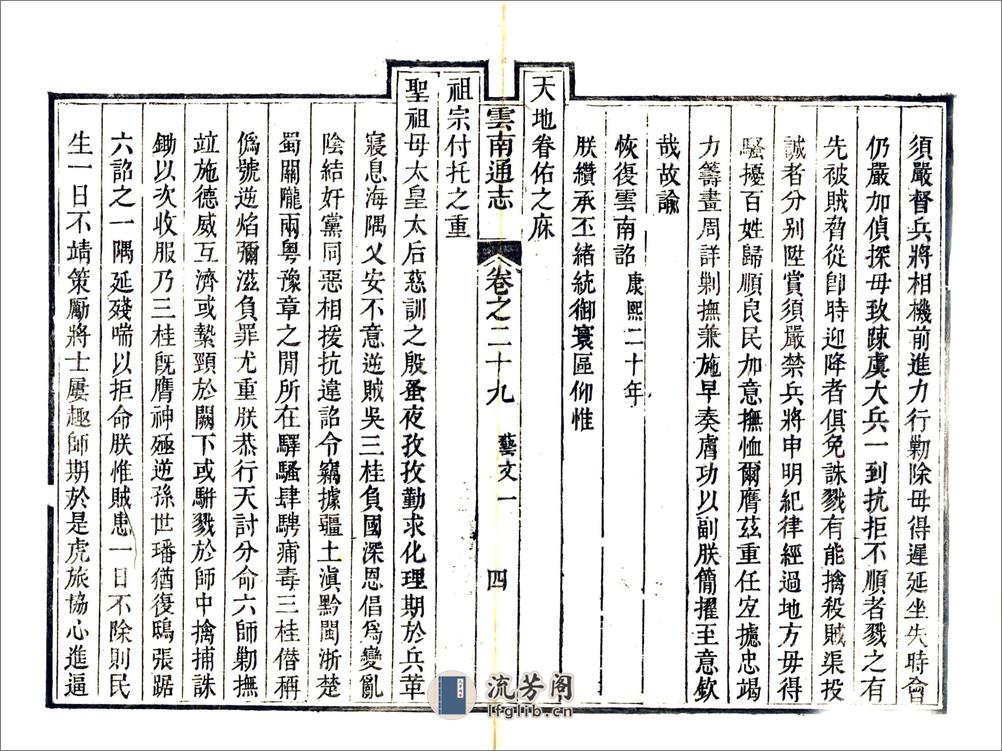 須嚴督兵將相機前進力行勦除毋得遲延坐失時會
仍嚴加偵探毋致疎虞大兵一到抗拒不順者戮之有
先被賊脅從卽時迎降者俱免誅戮有能擒殺賊渠投
誠者分别陞賞須嚴禁兵將申明紀律經過地方毋得
騷擾百姓歸順良民加意撫恤爾膺兹重任宐攄忠竭
力籌畫周詳剿撫兼施早奏膚功以副朕簡擢至意欽
哉故諭
恢復雲南詔 康熙二十年
朕纘承丕緒統御寰區仰惟
天地眷佑之庥
雲南通志 卷之二十九 藝文一 四
祖宗付托之重
聖祖母太皇太后慈訓之殷蚤夜孜孜勤求化理期於兵革
寢息海隅乂安不意逆賊吳三桂負國深恩倡爲變亂
陰結奸黨同惡相援抗違詔令竊據疆土滇黔閩浙楚
蜀關隴兩粤豫章之閒所在驛騷肆騁痡毒三桂僭稱
僞號逆焰彌滋負罪尤重朕恭行天討分命六師勦撫
竝施德威互濟或縶頸於闕下或駢戮於師中擒捕誅
鋤以次收服乃三桂旣膺神殛逆孫世璠猶復鴟張踞
六詔之一隅延殘喘以拒命朕惟賊患一日不除則民
生一日不靖策勵將士屢趣師期於是虎旅協心進逼
流芳阁
lfglib.cn